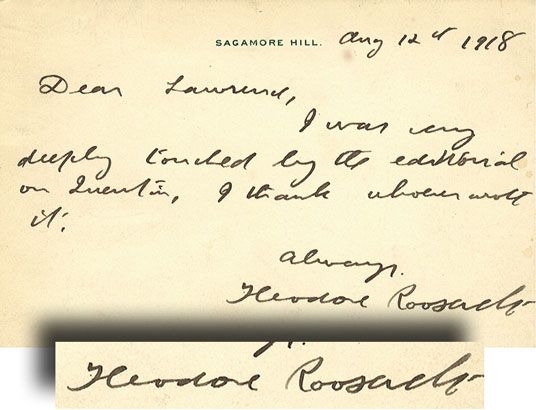 SAGAMORE HILL. Aug 12th 1918
Dear Lawrence,
I was very
deeply touched by the editorial
on Quentin, I thank whoever wrote
it.
Always.
Theodore Roosevelt
Theodore Roosevelt